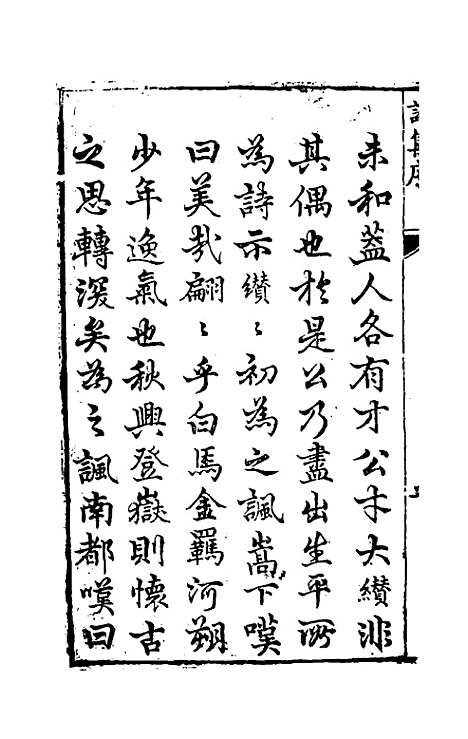 詩集序
未和蓋人各有才公才大纘非
其偶也於是公乃盡出生平所
為詩示纘〻初為之諷嵩下嘆
曰美哉翩〻乎白馬金羈河朔
少年逸氣也秋興登嶽則懷古
之思轉深矣為之諷南都嘆曰